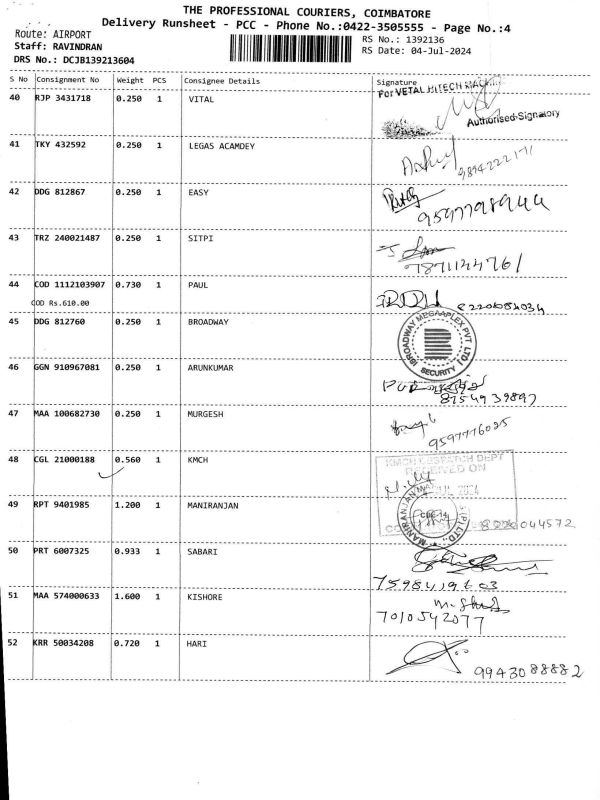 THE PROFESSIONAL COURIERS, COIMBATORE
Delivery Runsheet - PCC - Phone No.:0422-3505555 - Page No.:4
Route: AIRPORT
Staff: RAVINDRAN
DRS No.: DCJB139213604
RS No.: 1392136
RS Date: 04-Jul-2024
S No Consignment No Weight PCS Consignee Details Signature
For VETAL HITECH MACH
40 RJP 3431718 0.250 1 VITAL
Authorised Signatory
41 TKY 432592 0.250 1 LEGAS ACAMDEY
9894222171
42 DDG 812867 0.250 1 EASY
9597798944
43 TRZ 240021487 0.250 1 SITPI
7871124761
44 COD 1112103907 0.730 1 PAUL
COD Rs.610.00
8220684034
45 DDG 812760 0.250 1 BROADWAY
BROADWAY MEGAAPLEX PVT LTD
B
SECURITY
46 GGN 910967081 0.250 1 ARUNKUMAR
8754939897
47 MAA 100682730 0.250 1 MURGESH
9597776025
48 CGL 21000188 0.560 1 KMCH
KMCH DESPATCH DEPT
RECEIVED ON
JUL 2024
49 RPT 9401985 1.200 1 MANIRANJAN
MANIRANJAN
(P) LTD.,
CBE-14
50 PRT 6007325 0.933 1 SABARI
51 MAA 574000633 1.600 1 KISHORE
7010542077
52 KRR 50034208 0.720 1 HARI
9943088882